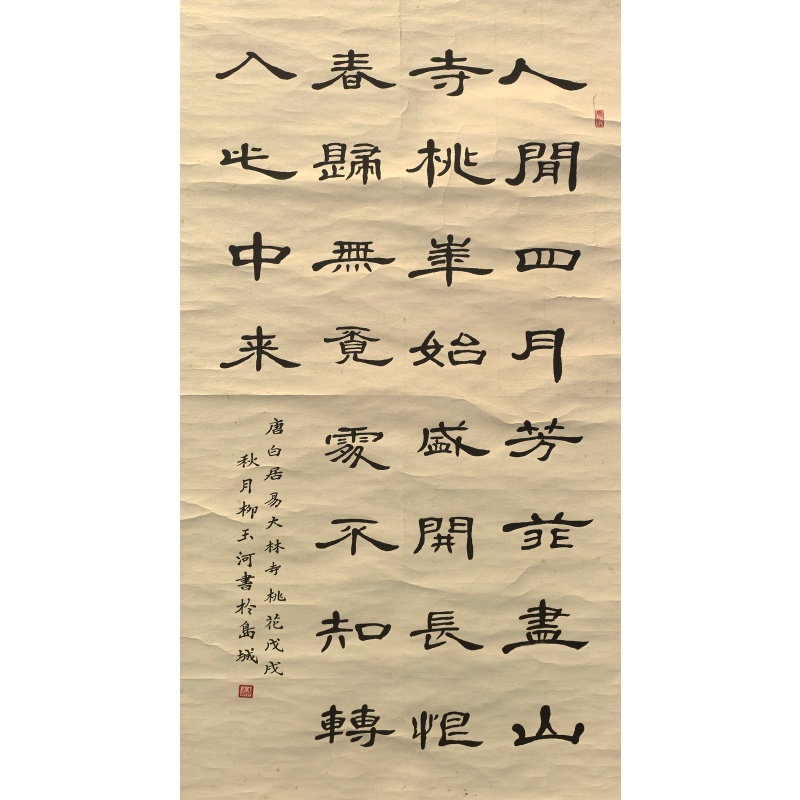 人間四月芳菲盡山
寺桃華始盛開長恨
春歸無覔處不知轉
入此中来
唐白居易大林寺桃花戊戌
秋月柳玉河書於島城